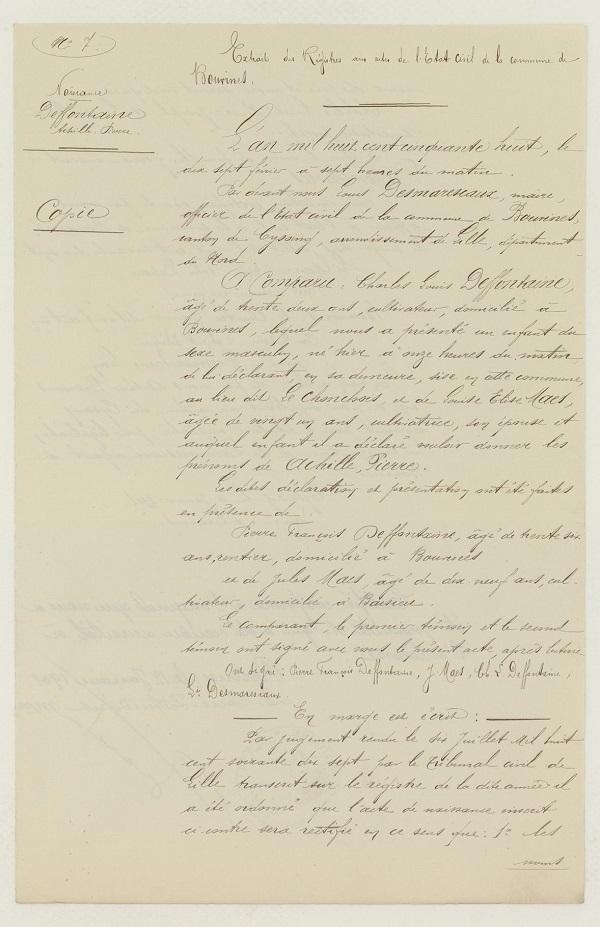 N° 7.
Extrait des Régistres aux actes de l'Etat civil de la commune de
Bouvines.
Naissance
Deffontaine
Achille-Pierre.
L'an mil huit cent cinquante huit, le
dix sept février à sept heures du matin.
Par devant nous Louis Desmareseaux, maire,
Copie
officier de l'Etat civil de la commune de Bouvines,
canton de Cysoing, arrondissement de Lille, département
du Nord.
A Comparu: Charles Louis Deffontaine,
âgé de trente deux ans, cultivateur, domicilié à
Bouvines, lequel nous a présenté un enfant du
sexe masculin, né hier à onze heures du matin
de lui déclarant, en sa demeure, sise en cette commune,
au lieu dit Le et de Louise Elise Maes,
âgée de vingt un ans, cultivatrice, son épouse et
auquel enfant il a déclaré vouloir donner les
prénoms de Achille, Pierre.
Lesdites déclaration et présentation ont été faites
en présence de
Pierre François Deffontaine, âgé de trente six
ans, rentier, domicilié à Bouvines
et de Jules Maes, âgé de dix-neuf ans, cul-
tivateur, domicilié à Baisieu.
Le comparant, le premier témoin et le second
témoin ont signé avec nous le présent acte, après lecture
Ont Signé: Pierre François Deffontaine, J Maes, Ch. L. Deffontaine,
Ls. Desmareseaux.
En marge est écrit:
Par jugement rendu le six Juillet Mil huit
cent soixante dix sept par le tribunal civil de
Lille transcrit sur le régistre de la dite année il
a été ordonné que l'acte de naissance inscrit
ci-contre sera rectifié en ce sens que: 1° les
noms